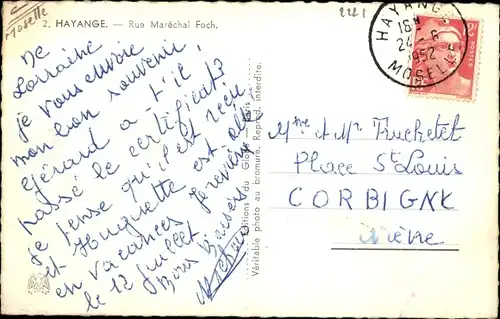 Moselle
2. HAYANGE. — Rue Maréchal Foch.
2221
De
Lorraine
je vous envoie
mon bon souvenir,
Gérard a-t'il
passé le certificat?
Je pense qu'il est reçu
et Huguette est-elle
en vacances Je reviens
le 12 juillet
Bons Baisers
Éditions du Globe - Paris
Véritable photo au bromure. Reprod. interdite.
HAYANGE
24-6
1952
MOSELLE
POSTES
Mme et Mr Truchetet
Place St Louis
CORBIGNY
Nièvre